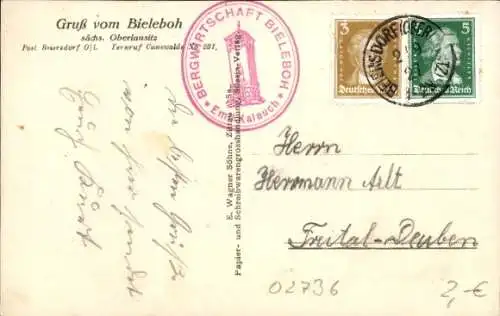 Gruß vom Bieleboh
sächs. Oberlausitz
Post Beiersdorf O/L. Fernruf Cunewalde Nr. 221,
BERGWIRTSCHAFT BIELEBOH
* Emil Kalauch *
3
Deutsches Reich
5
Deutsches Reich
Die besten Grüße
von
sendet
E. Wagner Söhne, Zittau i/Sa.
Papier- und Schreibwarengrosshandlung,
Herrn
Herrmann Arlt
Freital-Deuben
02736
2,-€